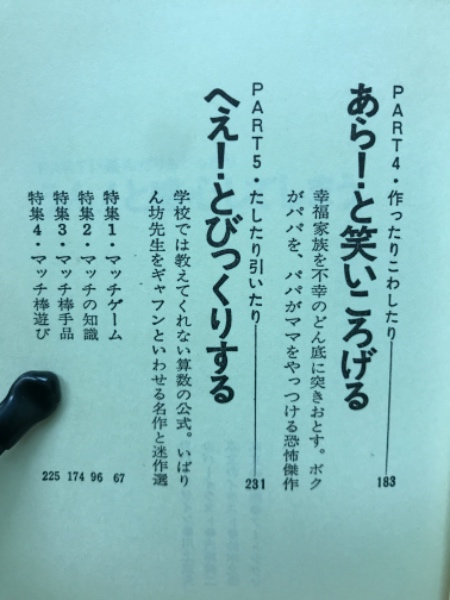 PART4・作ったりこわしたり――183
あら!と笑いころげる
幸福家族を不幸のどん底に突きおとす。ボク
がパパを、パパがママをやっつける恐怖傑作
PART5・たしたり引いたり――231
へえ!とびっくりする
学校では教えてくれない算数の公式。いばり
ん坊先生をギャフンといわせる名作と迷作選
特集1・マッチゲーム 67
特集2・マッチの知識 96
特集3・マッチ棒手品 174
特集4・マッチ棒遊び 225